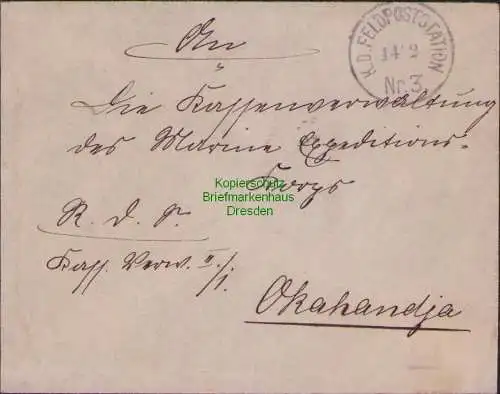 An
K. D. FELDPOSTSTATION
14/2
Nr. 3
Die Kassenverwaltung
des Marine Expeditions-
Korps
Kopierschutz
Briefmarkenhaus
Dresden
R. d. S.
Kass. Verw. II./1.
Okahandja